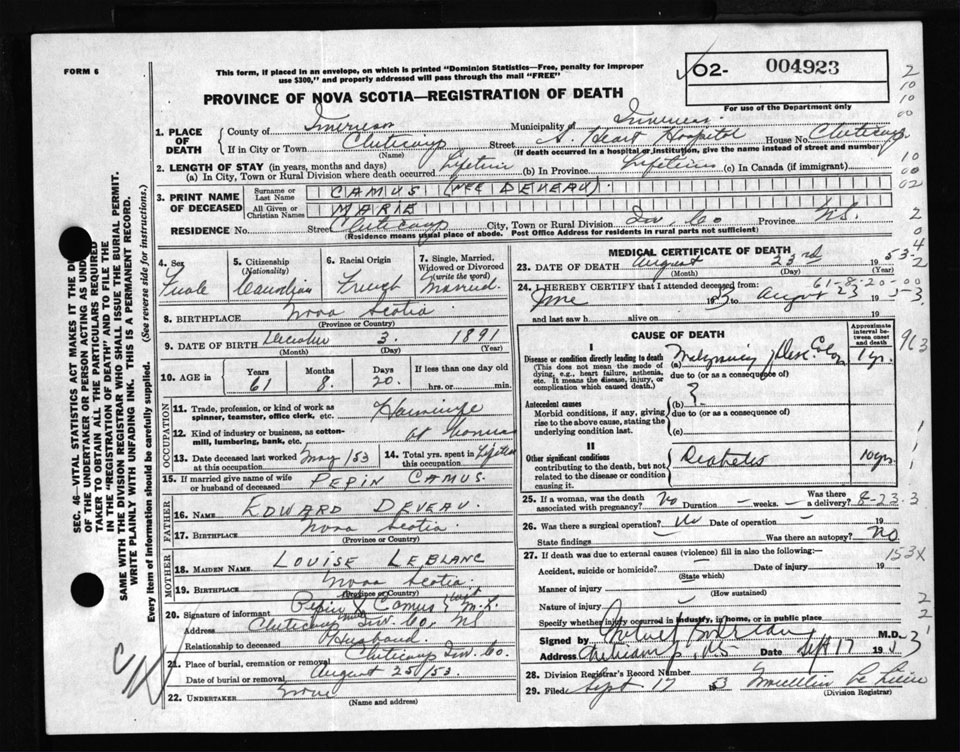 FORM 6
This form, if placed in an envelope, on which is printed "Dominion Statistics—Free, penalty for improper
use $300," and properly addressed will pass through the mail "FREE"
O2- 004923
For use of the Department only
PROVINCE OF NOVA SCOTIA—REGISTRATION OF DEATH
1. PLACE OF DEATH
County of Inverness Municipality of Inverness
If in City or Town Cheticamp Street Heart Hospital House No. Cheticamp
(Name) (If death occurred in a hospital or institution, give the name instead of street and number)
2. LENGTH OF STAY (in years, months and days)
(a) In City, Town or Rural Division where death occurred Lifetime (b) In Province Lifetime (c) In Canada (if immigrant)
3. PRINT NAME OF DECEASED
Surname or Last Name CAMUS (NEE DEVEAU)
All Given or Christian Names MARIE
RESIDENCE No. Street Cheticamp City, Town or Rural Division Inv. Co Province N.S.
(Residence means usual place of abode. Post Office Address for residents in rural parts not sufficient)
4. Sex
5. Citizenship (Nationality)
6. Racial Origin
7. Single, Married, Widowed or Divorced (write the word)
Female Canadian French Married
8. BIRTHPLACE Nova Scotia
(Province or Country)
9. DATE OF BIRTH December 3. 1891
(Month) (Day) (Year)
10. AGE in Years Months Days If less than one day
61 8. 20. hrs. or min.
OCCUPATION
11. Trade, profession, or kind of work as spinner, teamster, office clerk, etc.
12. Kind of industry or business, as cotton-mill, lumbering, bank, etc. at
13. Date deceased last worked at this occupation May/53
14. Total yrs. spent in this occupation
15. If married give name of wife or husband of deceased PEPIN CAMUS.
FATHER
16. NAME EDWARD DEVEAU.
17. BIRTHPLACE Nova Scotia
(Province or Country)
MOTHER
18. MAIDEN NAME LOUISE LEBLANC
19. BIRTHPLACE Nova Scotia
(Province or Country)
20. Signature of informant Pepin X Camus
Address Cheticamp Inv. Co. NS
Relationship to deceased Husband
21. Place of burial, cremation or removal Cheticamp Inv Co.
Date of burial or removal August 25/53.
22. UNDERTAKER None
(Name and address)
MEDICAL CERTIFICATE OF DEATH
23. DATE OF DEATH August 23rd 1953
(Month) (Day) (Year)
61-8-20-00
24. I HEREBY CERTIFY that I attended deceased from:
June 1953 August 23 1953
and last saw h alive on 19
CAUSE OF DEATH
Approximate interval between onset and death
I
Disease or condition directly leading to death
(This does not mean the mode of dying, e.g., heart failure, asthenia, etc. It means the disease, injury, or complication which caused death.)
(a) 1 yr.
due to (or as a consequence of)
Antecedent causes
Morbid conditions, if any, giving rise to the above cause, stating the underlying condition last.
(b)
due to (or as a consequence of)
(c)
II
Other significant conditions contributing to the death, but not related to the disease or condition causing it.
Diabetes 10 yrs.
25. If a woman, was the death associated with pregnancy? No Duration — weeks. Was there a delivery? 8-23-3
26. Was there a surgical operation? No Date of operation — 19
State findings — Was there an autopsy? No
153X
27. If death was due to external causes (violence) fill in also the following:—
Accident, suicide or homicide? — Date of injury 19
(State which)
Manner of injury
(How sustained)
Nature of injury —
Specify whether injury occurred in industry, in home, or in public place
Signed by M.D.
Address Cheticamp, NS Date Sept 17 1953
28. Division Registrar's Record Number
29. Filed Sept 17 1953
(Division Registrar)
SEC. 46—VITAL STATISTICS ACT MAKES IT THE DU
OF THE UNDERTAKER OR PERSON ACTING AS UND
TAKER TO OBTAIN ALL THE PARTICULARS REQUIRED
IN THE "REGISTRATION OF DEATH" AND TO FILE THE
SAME WITH THE DIVISION REGISTRAR WHO SHALL ISSUE THE BURIAL PERMIT.
WRITE PLAINLY WITH UNFADING INK. THIS IS A PERMANENT RECORD.
Every item of information should be carefully supplied. (See reverse side for instructions.)